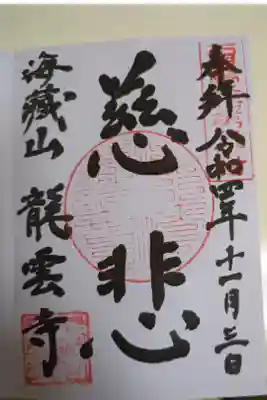 奉拝 令和四年十一月三日
慈悲心
海蔵山 龍雲寺